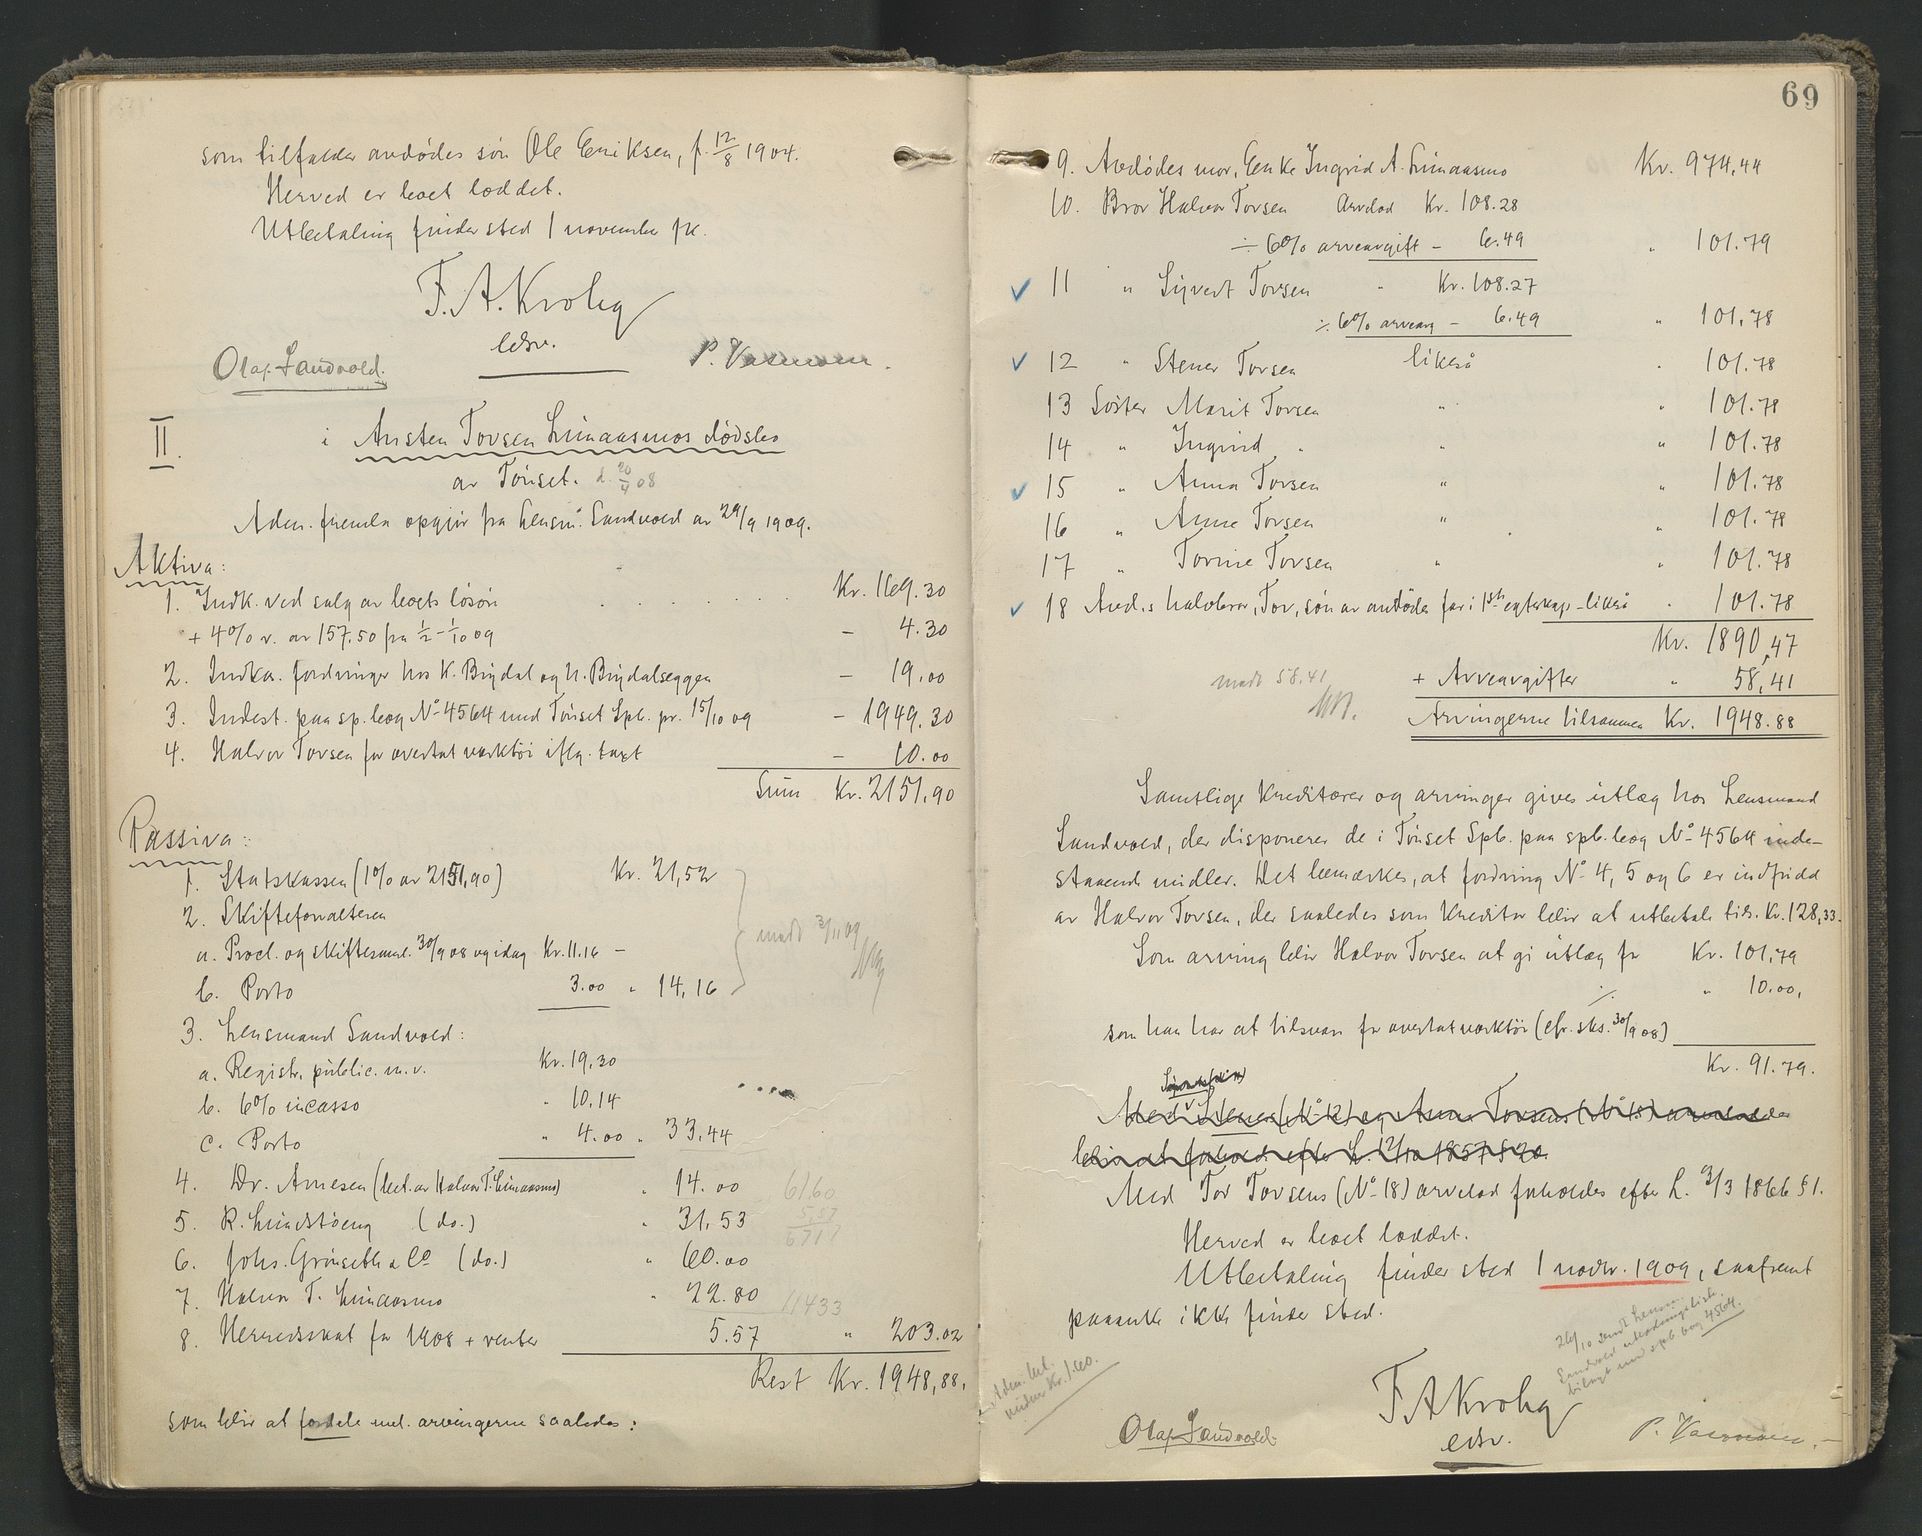 som tilfalder avdødes søn Ole Eriksen, f. 12/8 1904.
Herved er boet loddet.
Utbetaling finder sted 1 november fk.
F. A. Krohg
edsv.
Olaf Sandvold.
P. Vaimoen.
II.
i Austen Torsen Limaasmos dødsbo
av Tönset. d. 20/4 08
Adm. fremla opgjør fra lensm. Sandvold av 29/9 1909.
Aktiva:
1. Indk. ved salg av boets løsøre Kr. 169.30
+ 4% r. av 157.50 fra 1/2 - 1/10 09 - 4.30
2. Indkas. fordringer hos K. Brydal og H. Brydalseggen - 19.00
3. Indest. paa sp.bog No 4564 med Tönset Spb. pr. 15/10 09 - 1949.30
4. Halvor Torsen for overtat værktöi iflg. taxt - 10.00
Sum Kr. 2151.90
Passiva:
1. Statskassen (1% av 2151,90) Kr. 21,52
2. Skifteforvalteren
a. Procl. og skiftesaml. 30/9 08 og idag Kr. 11.16 -
b. Porto 3.00 " 14,16
modt 3/11 09
3. Lensmand Sandvold:
a. Registr., public. m.v. Kr. 19,30
b. 6% incasso " 10.14
c. Porto " 4.00 " 33,44
4. Dr. Arnesen (bet. av Halvor T. Limaasmo) " 14.00
5. R. Lundstöeng (do.) " 31,53
6. Johs. Grönseth & Co (do.) " 60.00
7. Halvor T. Limaasmo " 22.80
8. Herredsskat for 1908 + renter 5.57 " 203.02
6160
5.57
6717
11433
Rest Kr. 1948,88.
som blir at fordele mel. arvingerne saaledes:
69
9. Avdødes mor, Enke Ingrid A. Limaasmo Kr. 974,44
10. Bror Halvor Torsen Arvelod Kr. 108.28
÷ 6% arveavgift - 6.49 " 101.79
11 " Syvert Torsen " Kr. 108.27
÷ 6% arveavg - 6.49 " 101,78
12 " Stener Torsen likeså " 101.78
13 Søster Marit Torsen " " 101.78
14 " Ingrid " " " 101.78
15 " Anna Torsen " " 101.78
16 " Anne Torsen " " 101.78
17 " Torine Torsen " " 101.78
18 Avd.s halvbror, Tor, søn av avdødes far i 1ste egteskap - likeså " 101.78
Kr. 1890,47
modt 58.41
+ Arveavgifter " 58,41
Arvingerne tilsammen Kr. 1948.88
Samtlige kreditorer og arvinger gives utlæg hos Lensmand
Sandvold, der disponerer de i Tönset Spb. paa spb.bog No 4564 inde-
staaende midler. Det bemærkes, at fordring No 4, 5 og 6 er indfridd
av Halvor Torsen, der saaledes som kreditor blir at utbetale tils. Kr. 128,33.
Som arving blir Halvor Torsen at gi utlæg for Kr. 101,79
÷ " 10.00,
som han har at tilsvare for overtat værktöi (cfr. sks. 30/9 08)
Kr. 91.79.
Med Stener (No 12) og Anna Torsens (No 15) arvelodder
blir at forhold. efter L. 12/10 1857 § 20.
Med Tor Torsens (No 18) arvelod forholdes efter L. 3/3 1866 § 1.
Herved er boet loddet.
Utbetaling finder sted 1 novbr. 1909, saafremt
paaanke ikke finder sted.
26/10 sendt Lensm.
Sandvold utlodningsliste
bilagt med spb. bog 4564.
Adm. bet.
under Kr. 1.60.
F A Krohg
edsv.
Olaf Sandvold.
P. Vaimoen.